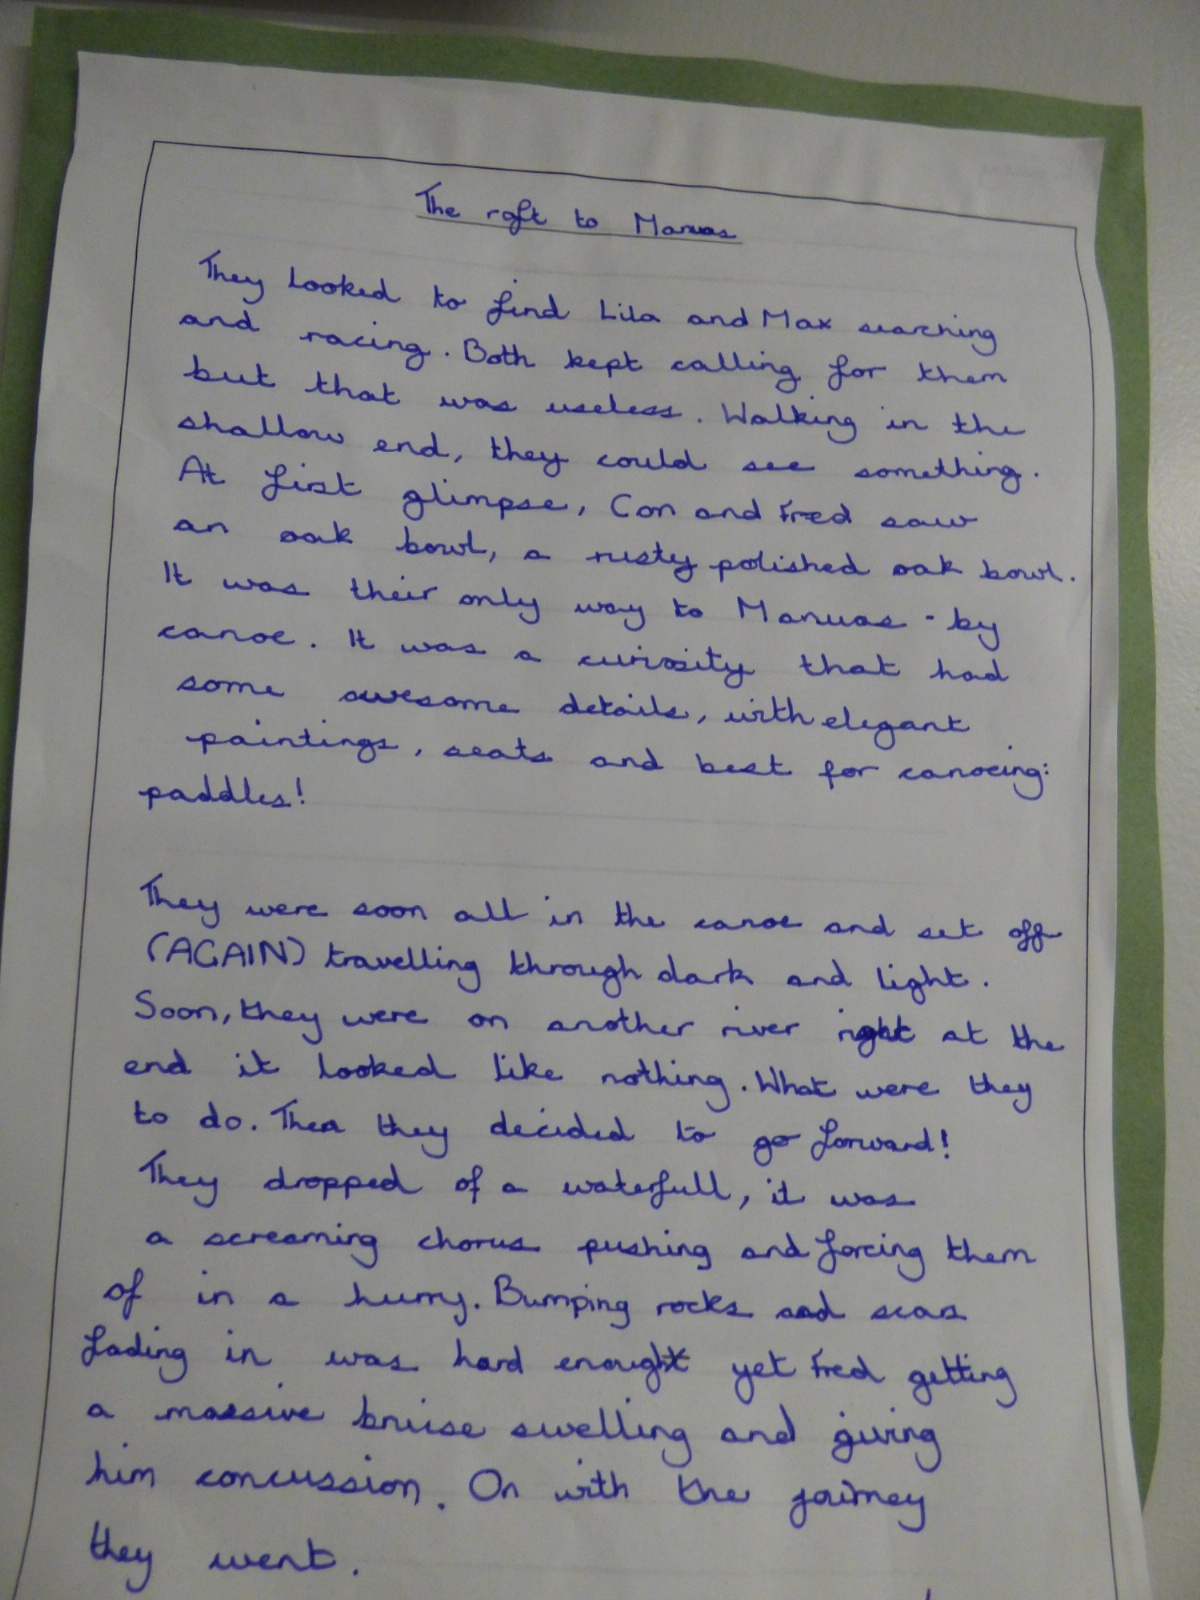 The raft to Manuas
They looked to find Lila and Max searching
and racing. Both kept calling for them
but that was useless. Walking in the
shallow end, they could see something.
At first glimpse, Con and Fred saw
an oak bowl, a rusty polished oak bowl.
It was their only way to Manuas - by
canoe. It was a curiosity that had
some awesome details, with elegant
paintings, seats and best for canoeing:
paddles!
They were soon all in the canoe and set off
(AGAIN) travelling through dark and light.
Soon, they were on another river right at the
end it looked like nothing. What were they
to do. Then they decided to go forward!
They dropped of a waterfull, it was
a screaming chorus pushing and forcing them
of in a hurry. Bumping rocks and scars
fading in was hard enought yet Fred getting
a massive bruise swelling and giving
him concussion. On with the journey
they went.